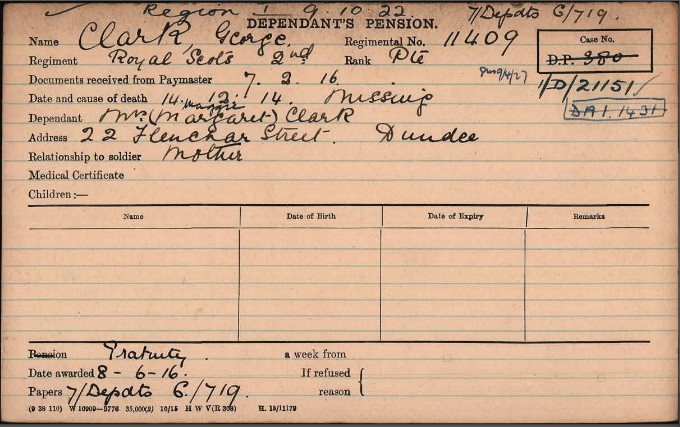 Region I 9.10.22 7/Depdts C/719.
DEPENDANT'S PENSION.
Name Clark, George. Regimental No. 11409
Case No.
D.P. 380
Regiment Royal Scots 2nd Rank Pte
Documents received from Paymaster 7. 2. 16 9/4/27 1/D/21151
Date and cause of death 14. 12. 14. Missing
DA 1. 1431
Maggie
Dependant Mrs (Margaret) Clark
Address 22 Street. Dundee
Relationship to soldier Mother
Medical Certificate
Children :—
Name Date of Birth Date of Expiry Remarks
Pension Gratuity. a week from
Date awarded 8 - 6 - 16. If refused {
Papers 7/Depdts C./719. reason
(9 38 110) W 10909—3776 35,000(2) 10/15 H W V(R 308) H. 15/11179